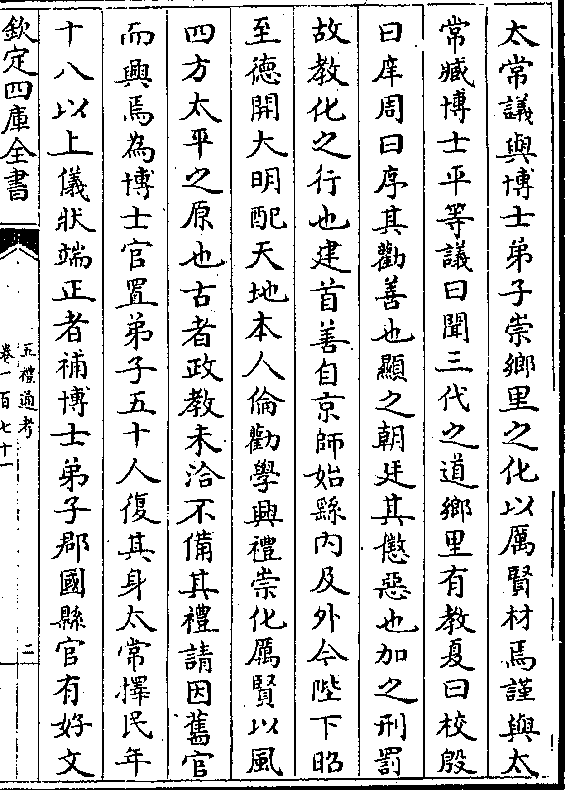 太常議與博士弟子崇鄉里之化以厲賢材焉謹與太
常臧博士平等議曰聞三代之道鄉里有教夏曰校殷
曰庠周曰序其勸善也顯之朝廷其懲惡也加之刑罰
故教化之行也建首善自京師始繇内及外今陛下昭
至德開大明配天地本人倫勸學興禮崇化厲賢以風
四方太平之原也古者政教未洽不備其禮請因舊官
而興焉為博士官置弟子五十人復其身太常擇民年
十八以上儀狀端正者補博士弟子郡國縣官有好文
欽定四庫全書
五禮通考
卷一百七十一
二